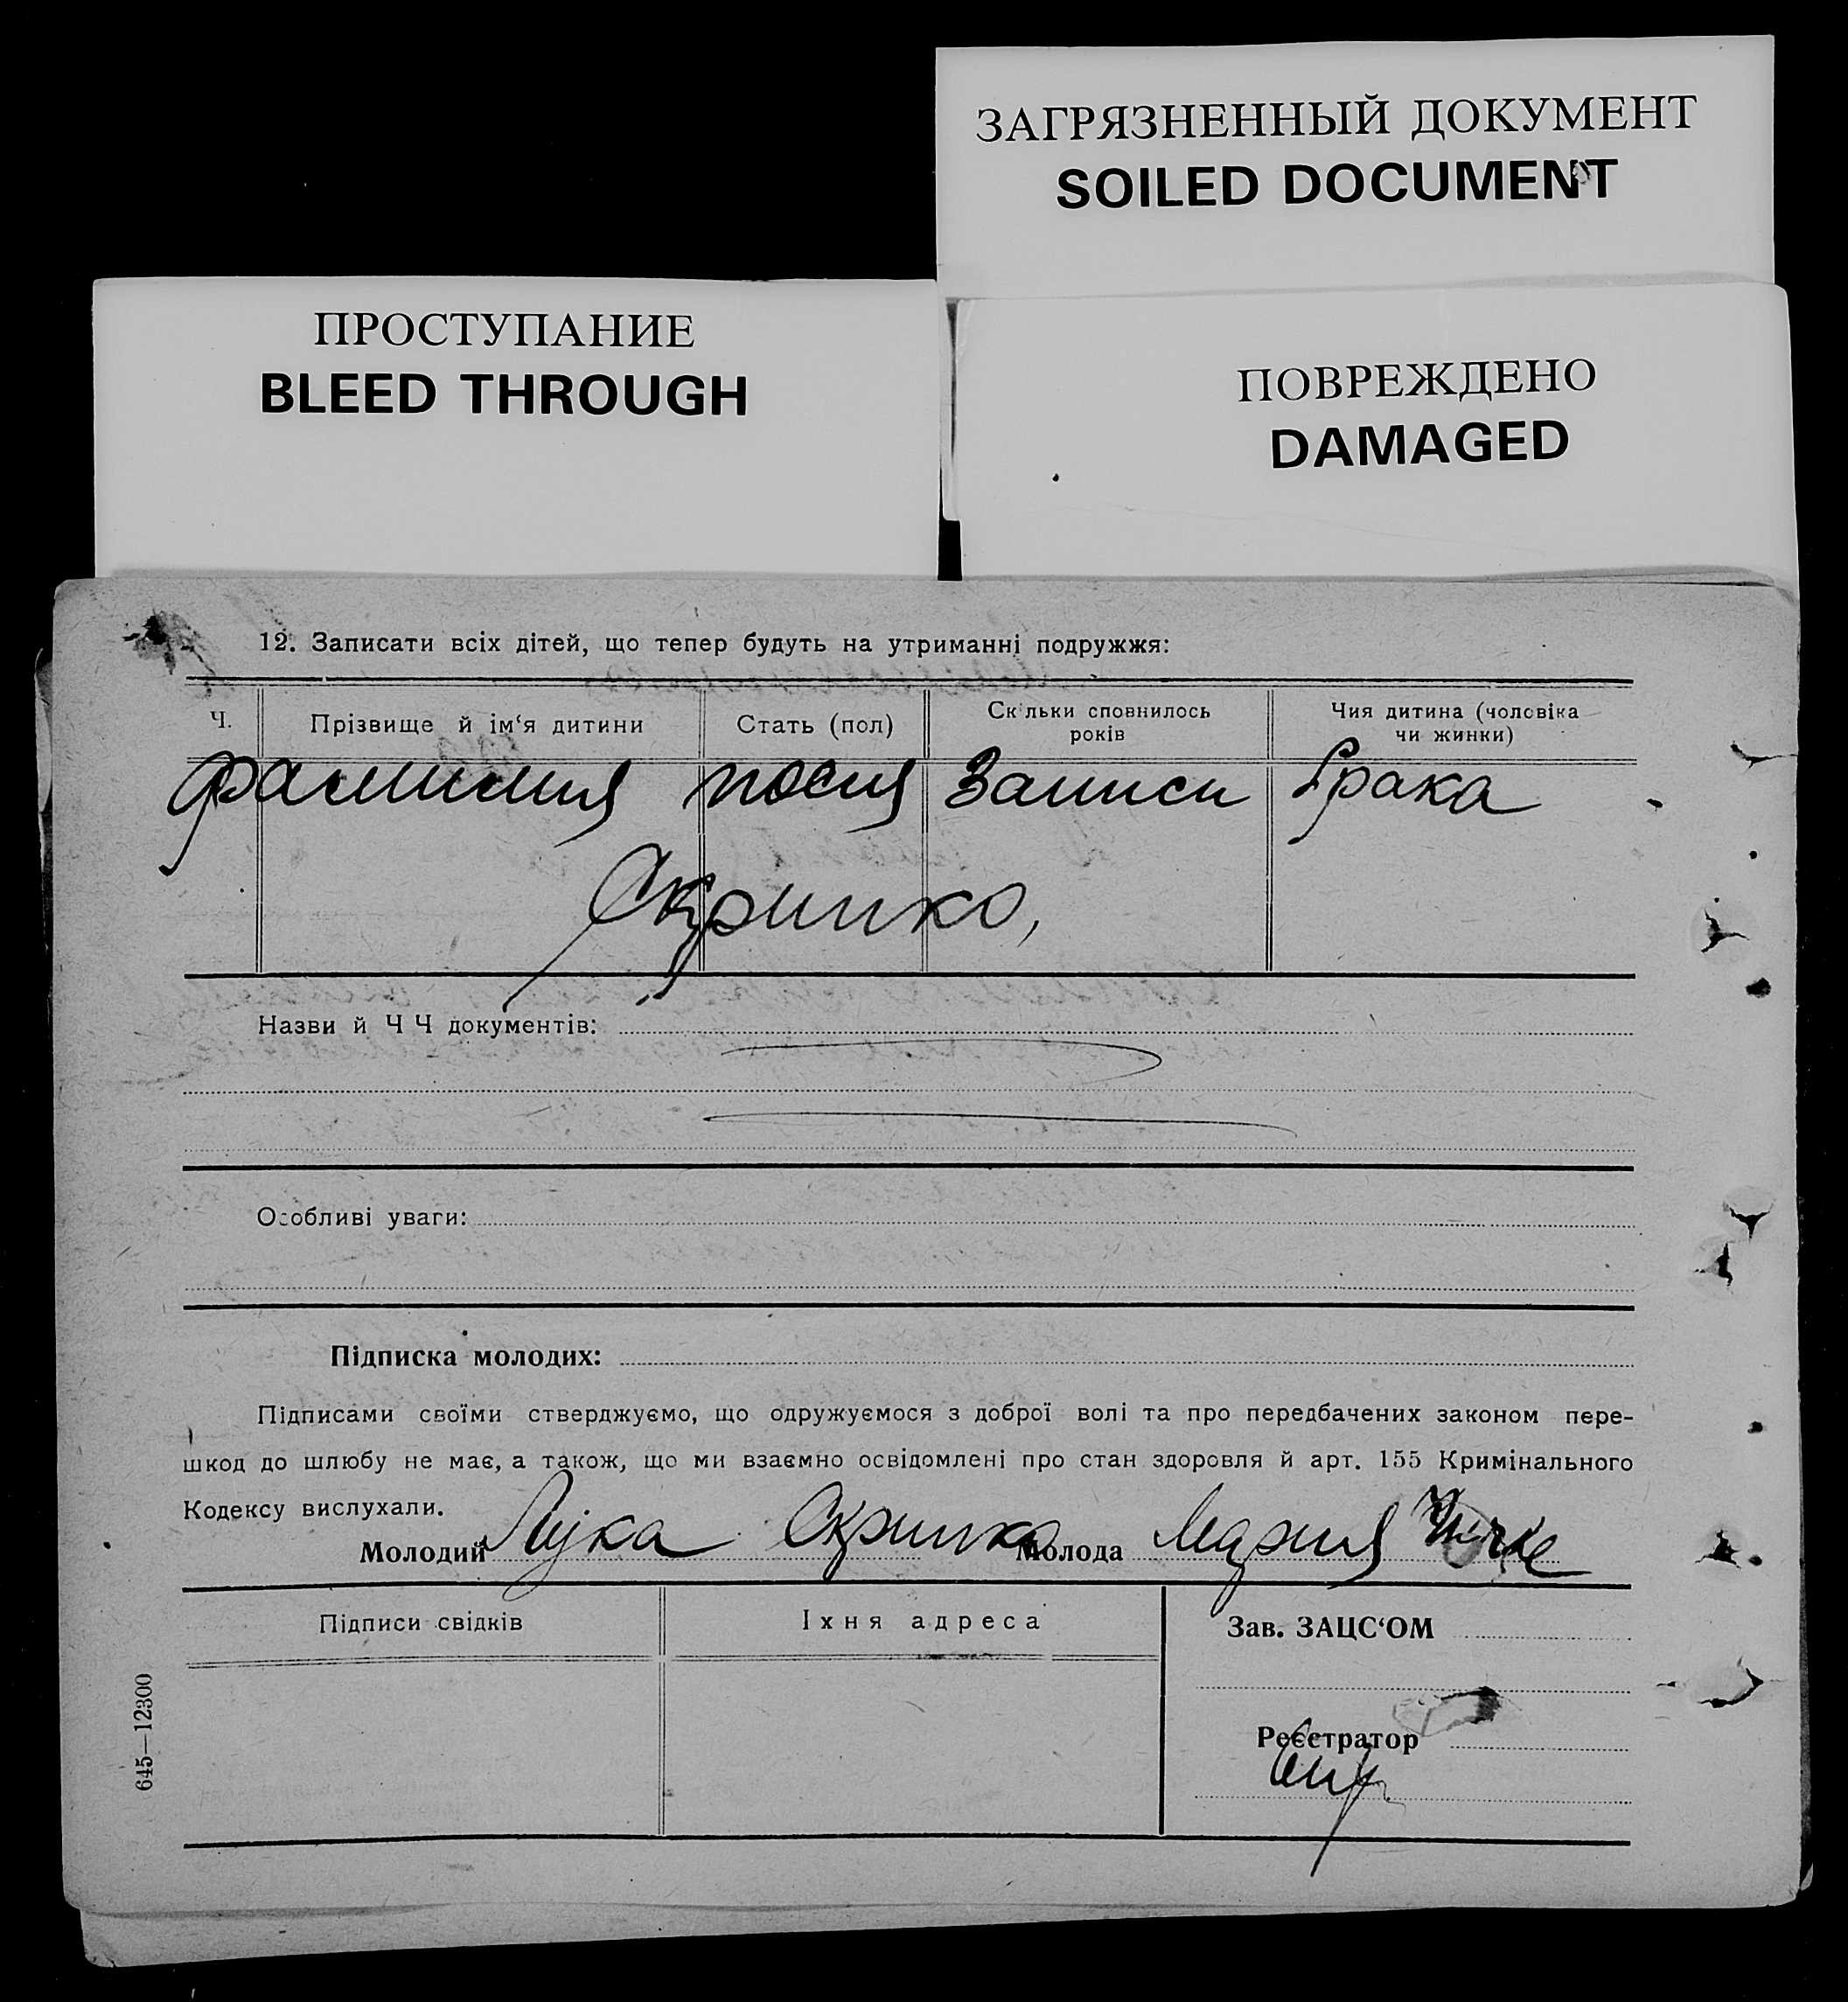 ЗАГРЯЗНЕННЫЙ ДОКУМЕНТ
SOILED DOCUMENT
ПРОСТУПАНИЕ
BLEED THROUGH
ПОВРЕЖДЕНО
DAMAGED
12. Записати всіх дітей, що тепер будуть на утриманні подружжя:
Ч. Прізвище й ім‘я дитини Стать (пол) Скільки сповнилось років Чия дитина (чоловіка чи жинки)
фамилия после записи брака
Скрипко,
Назви й Ч Ч документів:
Особливі уваги:
Підписка молодих:
Підписами своїми стверджуємо, що одружуємося з доброї волі та про передбачених законом пере-
шкод до шлюбу не має, а також, що ми взаємно освідомлені про стан здоровля й арт. 155 Кримінального
Кодексу вислухали.
Молодий Лука Скрипко Молода Мария
Підписи свідків Іхня адреса Зав. ЗАЦС‘ОМ
Реєстратор
645—12300